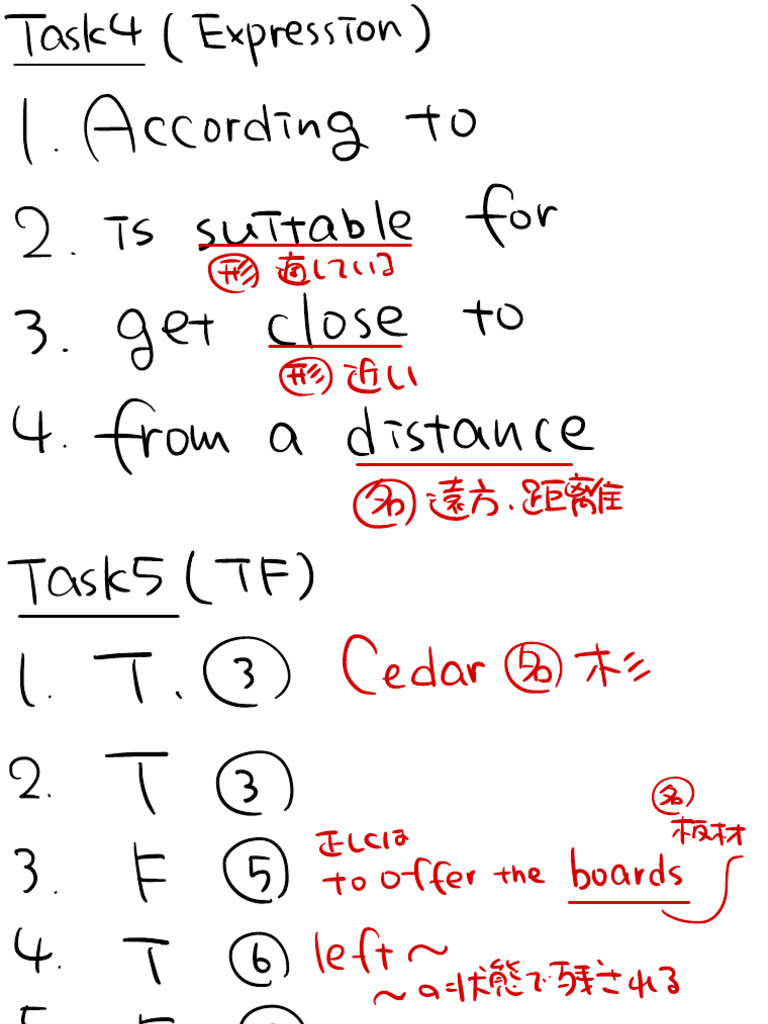 Task4 (Expression)
1. According to
2. is suitable for
形 適している
3. get close to
形 近い
4. from a distance
名 遠方、距離
Task5 (TF)
1. T. ③ Cedar 名 杉
2. T ③
名
板材
正しくは
3. F ⑤ to offer the boards
4. T ⑥ left ～
～の状態で残される
5. F